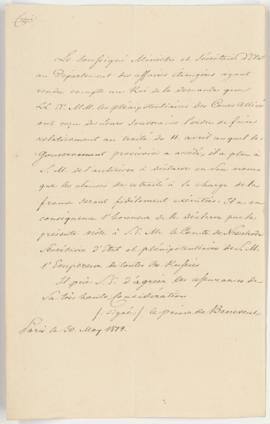 (Copie)
Le soussigné Ministre et Secrétaire d'Etat
au Département des affaires étrangères ayant
rendu compte au Roi de la demande que
LL. EE. MM. les plénipotentiaires des Cours alliées
ont reçu de leurs Souverains l'ordre de faire
relativement au traité du 11 avril auquel le
Gouvernement provisoire a accédé, il a plu à
S. M. de l'autoriser à déclarer en son nom
que les clauses du traité à la charge de la
france seront fidèlement exécutées. Il a en
conséquence l'honneur de le déclarer par la
présente note à S. E. M. le Comte de Nesselrode
Secrétaire d'Etat et plénipotentiaire de S. M.
l'Empereur de toutes les Russies
Il prie S. E. d'agréer les assurances de
Sa très haute Considération
(Signé) le prince de Benevent
Paris le 30. May 1814.